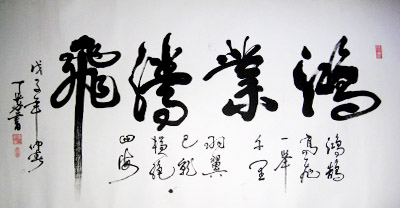 鴻業騰飛
鴻鵠
高飛
一舉
千里
羽翼
已就
橫絕
四海
戊子年
書